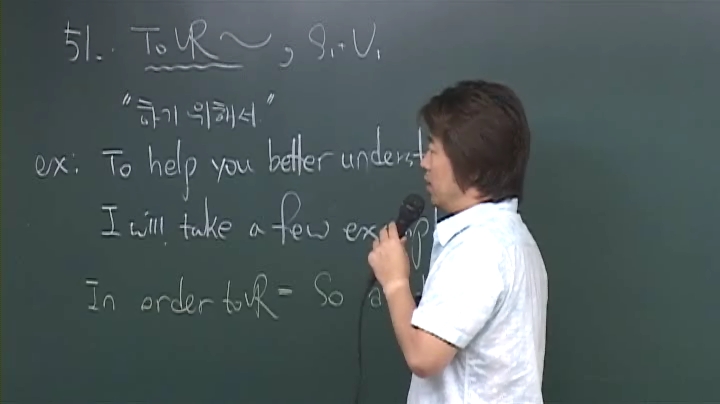 51. To VR ~, S₁+V₁
"하기 위해서"
ex: To help you better underst
I will take a few examp
In order to VR = So a